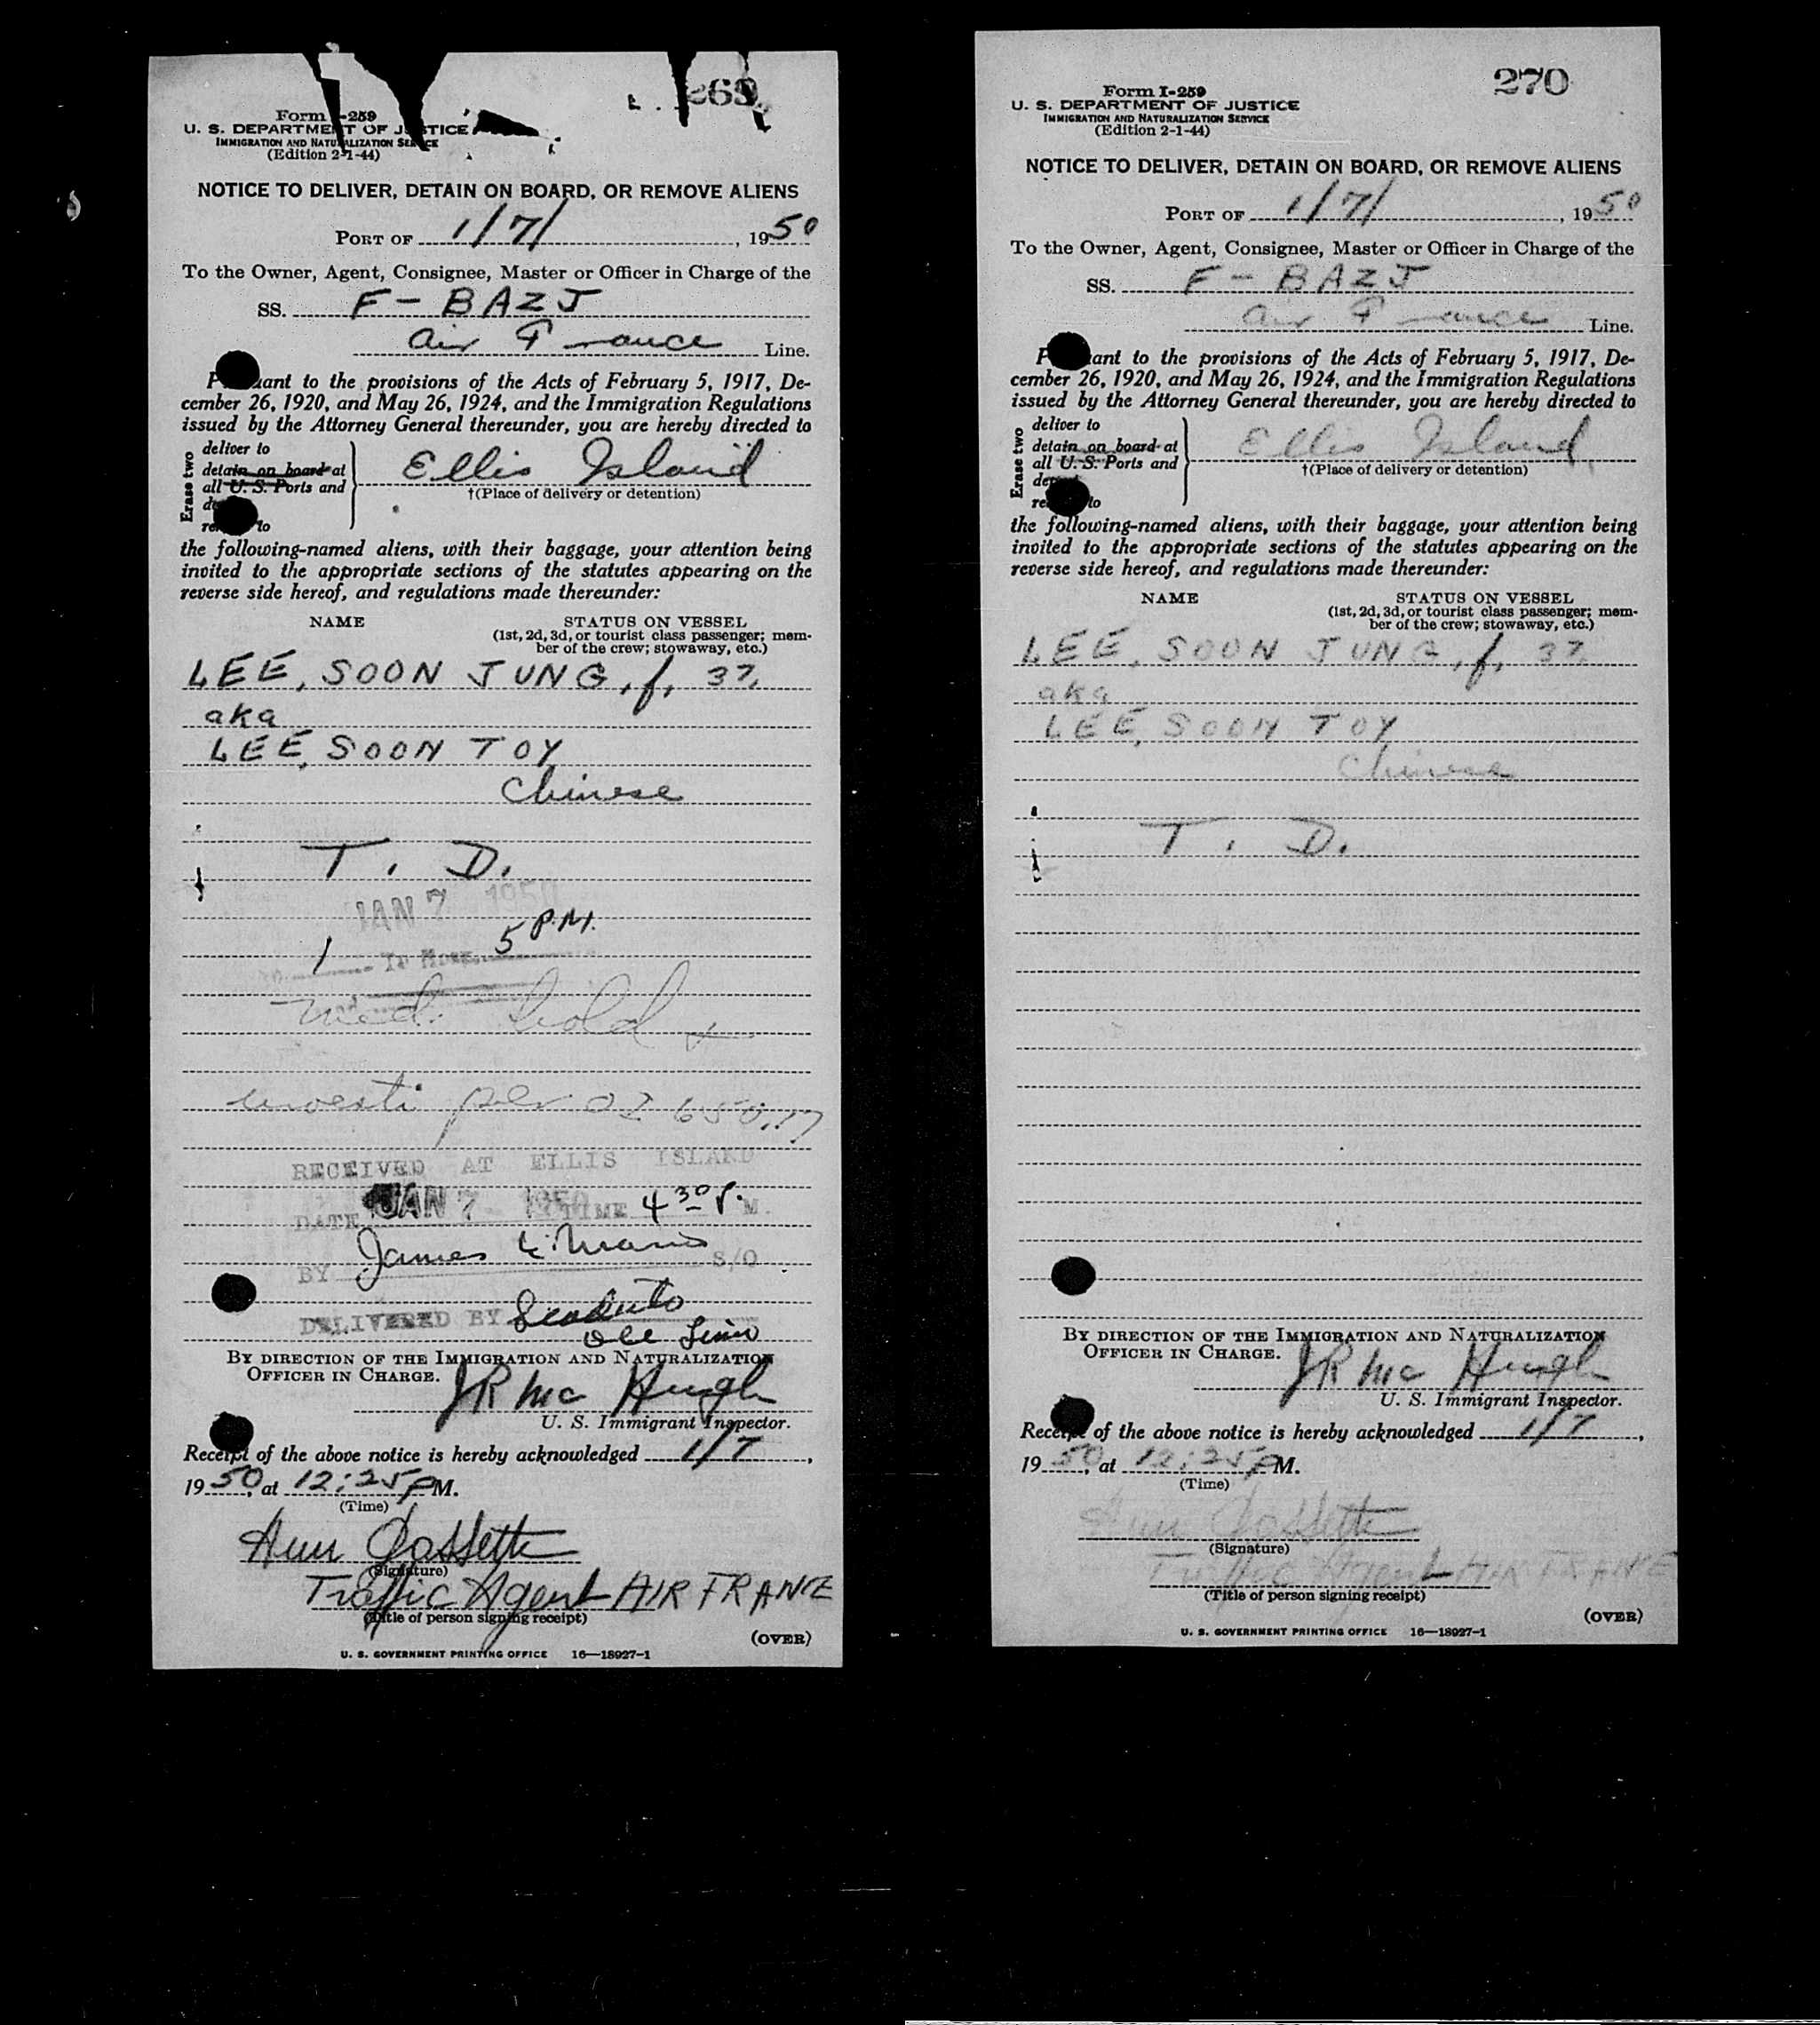 269
Form -259
U. S. DEPARTMENT OF JUSTICE
IMMIGRATION AND NATURALIZATION SERVICE
(Edition 2-1-44)
NOTICE TO DELIVER, DETAIN ON BOARD, OR REMOVE ALIENS
PORT OF 1/7/, 1950
To the Owner, Agent, Consignee, Master or Officer in Charge of the
SS. F-BAZJ
Air France Line.
Pursuant to the provisions of the Acts of February 5, 1917, De-
cember 26, 1920, and May 26, 1924, and the Immigration Regulations
issued by the Attorney General thereunder, you are hereby directed to
Erase two
deliver to
detain on board at
all U. S. Ports and
re to
Ellis Island
†(Place of delivery or detention)
the following-named aliens, with their baggage, your attention being
invited to the appropriate sections of the statutes appearing on the
reverse side hereof, and regulations made thereunder:
NAME STATUS ON VESSEL
(1st, 2d, 3d, or tourist class passenger; mem-
ber of the crew; stowaway, etc.)
LEE, SOON JUNG, f, 37,
aka
LEE, SOON TOY
Chinese
T. D.
JAN 7 1950
1 5 P.M.
med. hold
per
RECEIVED AT ELLIS ISLAND
DATE JAN 7 1950 TIME 4 30 P. M.
BY James S/O
DELIVERED BY
BY DIRECTION OF THE IMMIGRATION AND NATURALIZATION
OFFICER IN CHARGE.
JR McHugh
U. S. Immigrant Inspector.
Receipt of the above notice is hereby acknowledged 1/7,
1950, at 12:25 PM.
(Time)
Ann Gossette
(Signature)
Traffic Agent AIR FRANCE
(Title of person signing receipt)
(OVER)
U. S. GOVERNMENT PRINTING OFFICE 16—18927-1
270
Form I-259
U. S. DEPARTMENT OF JUSTICE
IMMIGRATION AND NATURALIZATION SERVICE
(Edition 2-1-44)
NOTICE TO DELIVER, DETAIN ON BOARD, OR REMOVE ALIENS
PORT OF 1/7/, 1950
To the Owner, Agent, Consignee, Master or Officer in Charge of the
SS. F-BAZJ
Air France Line.
Pursuant to the provisions of the Acts of February 5, 1917, De-
cember 26, 1920, and May 26, 1924, and the Immigration Regulations
issued by the Attorney General thereunder, you are hereby directed to
Erase two
deliver to
detain on board at
all U. S. Ports and
re to
Ellis Island
†(Place of delivery or detention)
the following-named aliens, with their baggage, your attention being
invited to the appropriate sections of the statutes appearing on the
reverse side hereof, and regulations made thereunder:
NAME STATUS ON VESSEL
(1st, 2d, 3d, or tourist class passenger; mem-
ber of the crew; stowaway, etc.)
LEE, SOON JUNG, f, 37,
aka
LEE, SOON TOY
Chinese
T. D.
BY DIRECTION OF THE IMMIGRATION AND NATURALIZATION
OFFICER IN CHARGE.
JR McHugh
U. S. Immigrant Inspector.
Receipt of the above notice is hereby acknowledged 1/7,
1950, at 12:25 PM.
(Time)
Ann Gossette
(Signature)
Traffic Agent AIR FRANCE
(Title of person signing receipt)
(OVER)
U. S. GOVERNMENT PRINTING OFFICE 16—18927-1